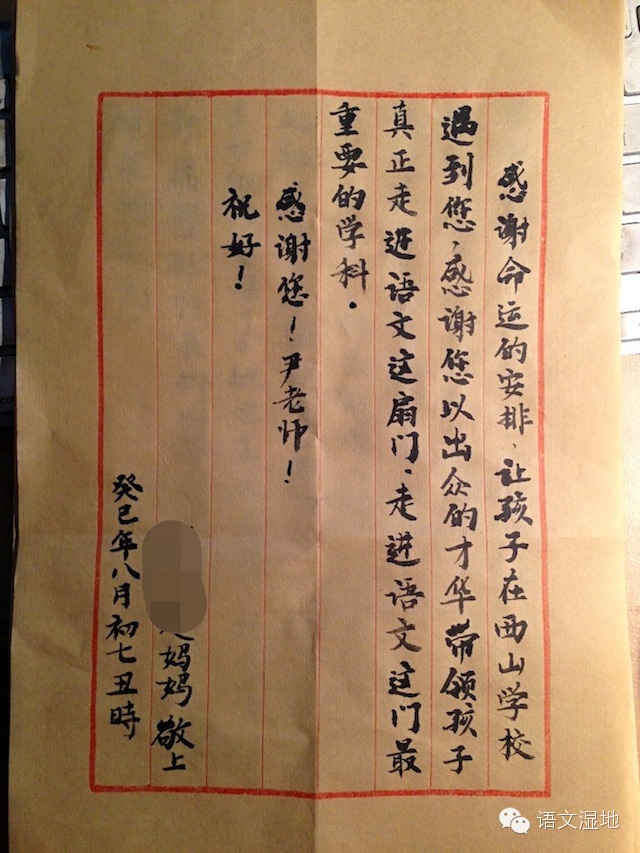 感谢命运的安排，让孩子在西山学校
遇到您，感谢您以出众的才华带领孩子
真正走进语文这扇门，走进语文这门最
重要的学科。
感谢您！尹老师！
祝好！
妈妈 敬上
癸巳年八月初七丑時
语文湿地